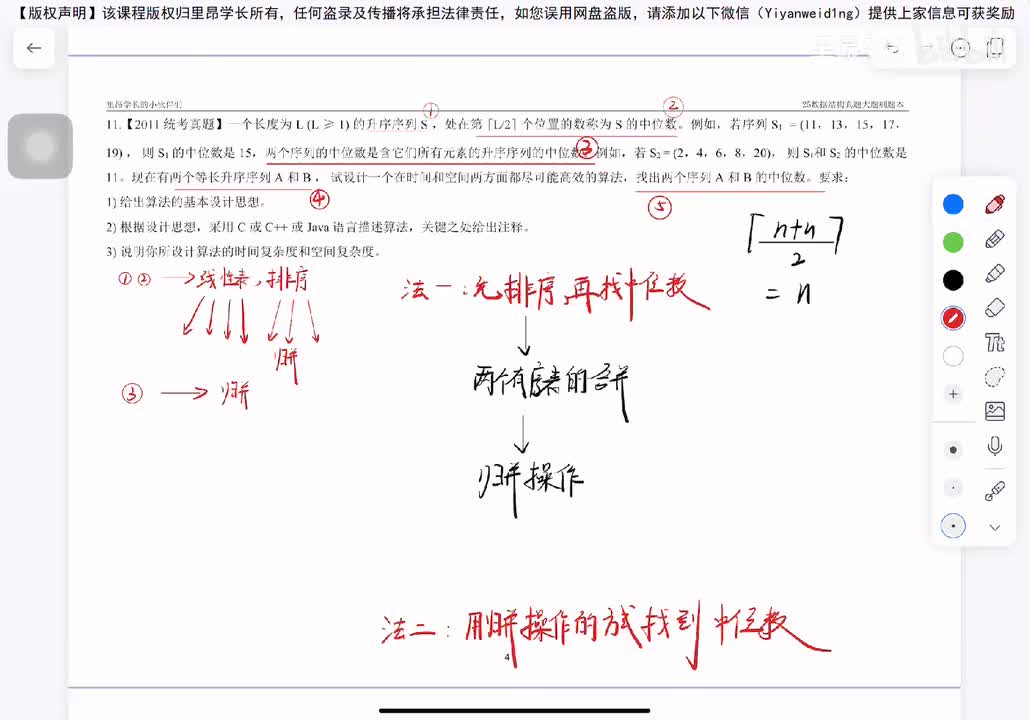 【版权声明】该课程版权归里昂学长所有，任何盗录及传播将承担法律责任，如您误用网盘盗版，请添加以下微信（Yiyanweid1ng）提供上家信息可获奖励
里昂学长的小伙伴们
25数据结构真题大题刷题本
① ②
11.【2011 统考真题】一个长度为 L (L ≥ 1) 的升序序列 S，处在第 ⌈L/2⌉ 个位置的数称为 S 的中位数。例如，若序列 S₁ =(11，13，15，17，
19)，则 S₁ 的中位数是 15，两个序列的中位数是含它们所有元素的升序序列的中位数③例如，若 S₂ = (2，4，6，8，20)，则 S₁和 S₂ 的中位数是
11。现在有两个等长升序序列 A 和 B，试设计一个在时间和空间两方面都尽可能高效的算法，找出两个序列 A 和 B 的中位数。要求：
④ ⑤
1) 给出算法的基本设计思想。
2) 根据设计思想，采用 C 或 C++ 或 Java 语言描述算法，关键之处给出注释。
3) 说明你所设计算法的时间复杂度和空间复杂度。
⌈(n+n)/2⌉
= n
①② → 线性表，排序
归并
③ → 归并
法一：先排序，再找中位数
两个有序表的合并
归并操作
法二：用归并操作的方式找到中位数
4
Tt